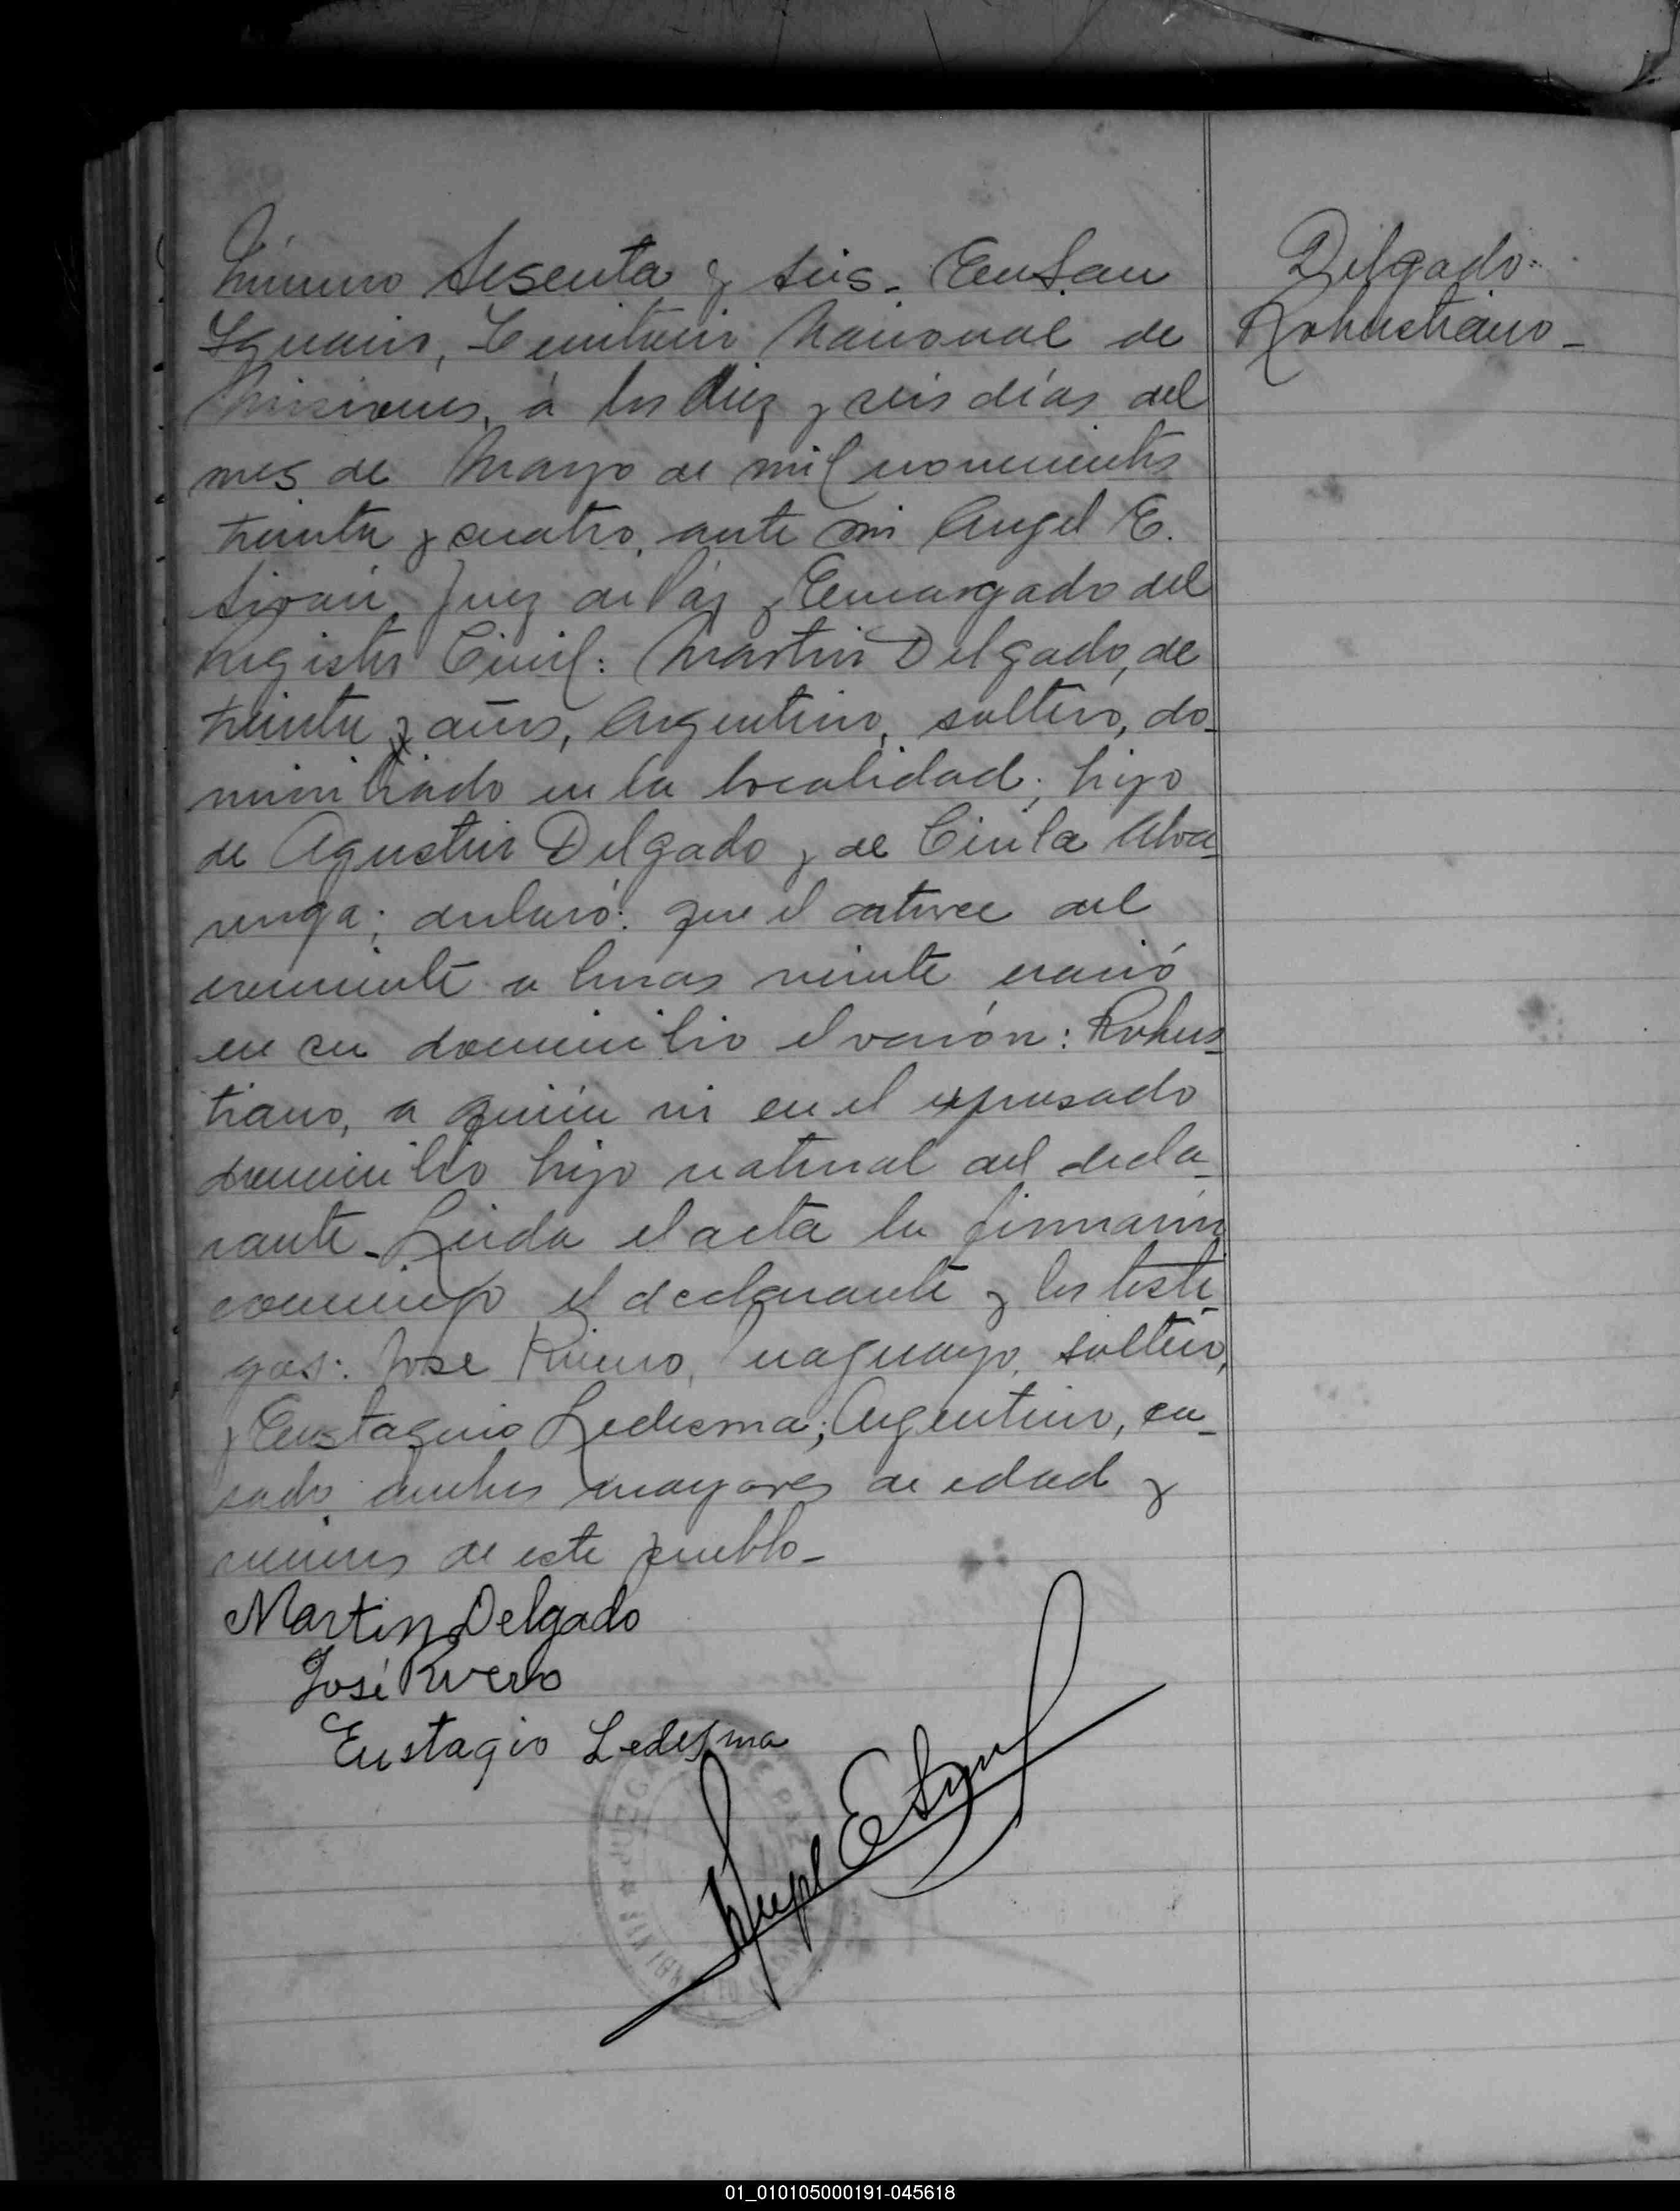 Número Sesenta y seis. En San
Ignacio, Territorio Nacional de
Misiones, á los diez y seis días del
mes de Mayo de mil novecientos
treinta y cuatro, ante mi Angel E.
Juez de Páz y Encargado del
Registro Civil: Martin Delgado, de
treinta años, Argentino, soltero, do-
miciliado en la localidad; hijo
de Agustin Delgado y de Cirila Alva-
renga; declaró: que el catorce del
corriente a horas veinte nació
en su domicilio el varón: Robus-
tiano, a quién vi en el expresado
domicilio hijo natural del decla-
rante. Leida el acta la firmaron
conmigo el declarante y los testi-
gos: José Rivero, Paraguayo, soltero,
y Eustaquio Ledesma; Argentino, ca-
sado ambos mayores de edad y
vecinos de este pueblo-
Martin Delgado
José Rivero
Eustaqio Ledesma
Angel E
JUZGADO DE PAZ
Delgado
Robustiano-
01_010105000191-045618